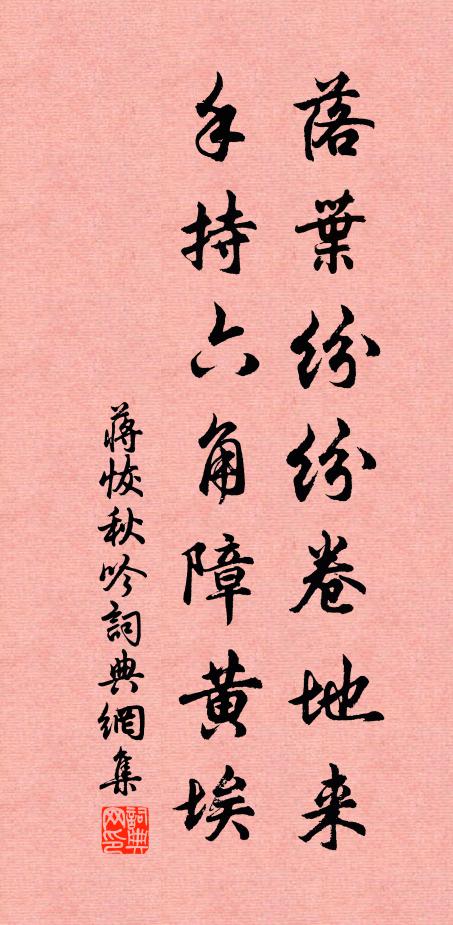 落葉纷纷卷地来
手持六角障黄埃
蒋恢秋吟詞典網集
詞典网印